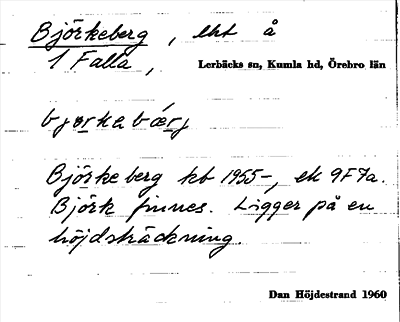 Björkeberg, lht å
1 Falla,
Lerbäcks sn, Kumla hd, Örebro län
bjørkebærj
Björkeberg kb 1955-, ek 9F7a.
Björk finnes. Ligger på en
höjdsträckning.
Dan Höjdestrand 1960